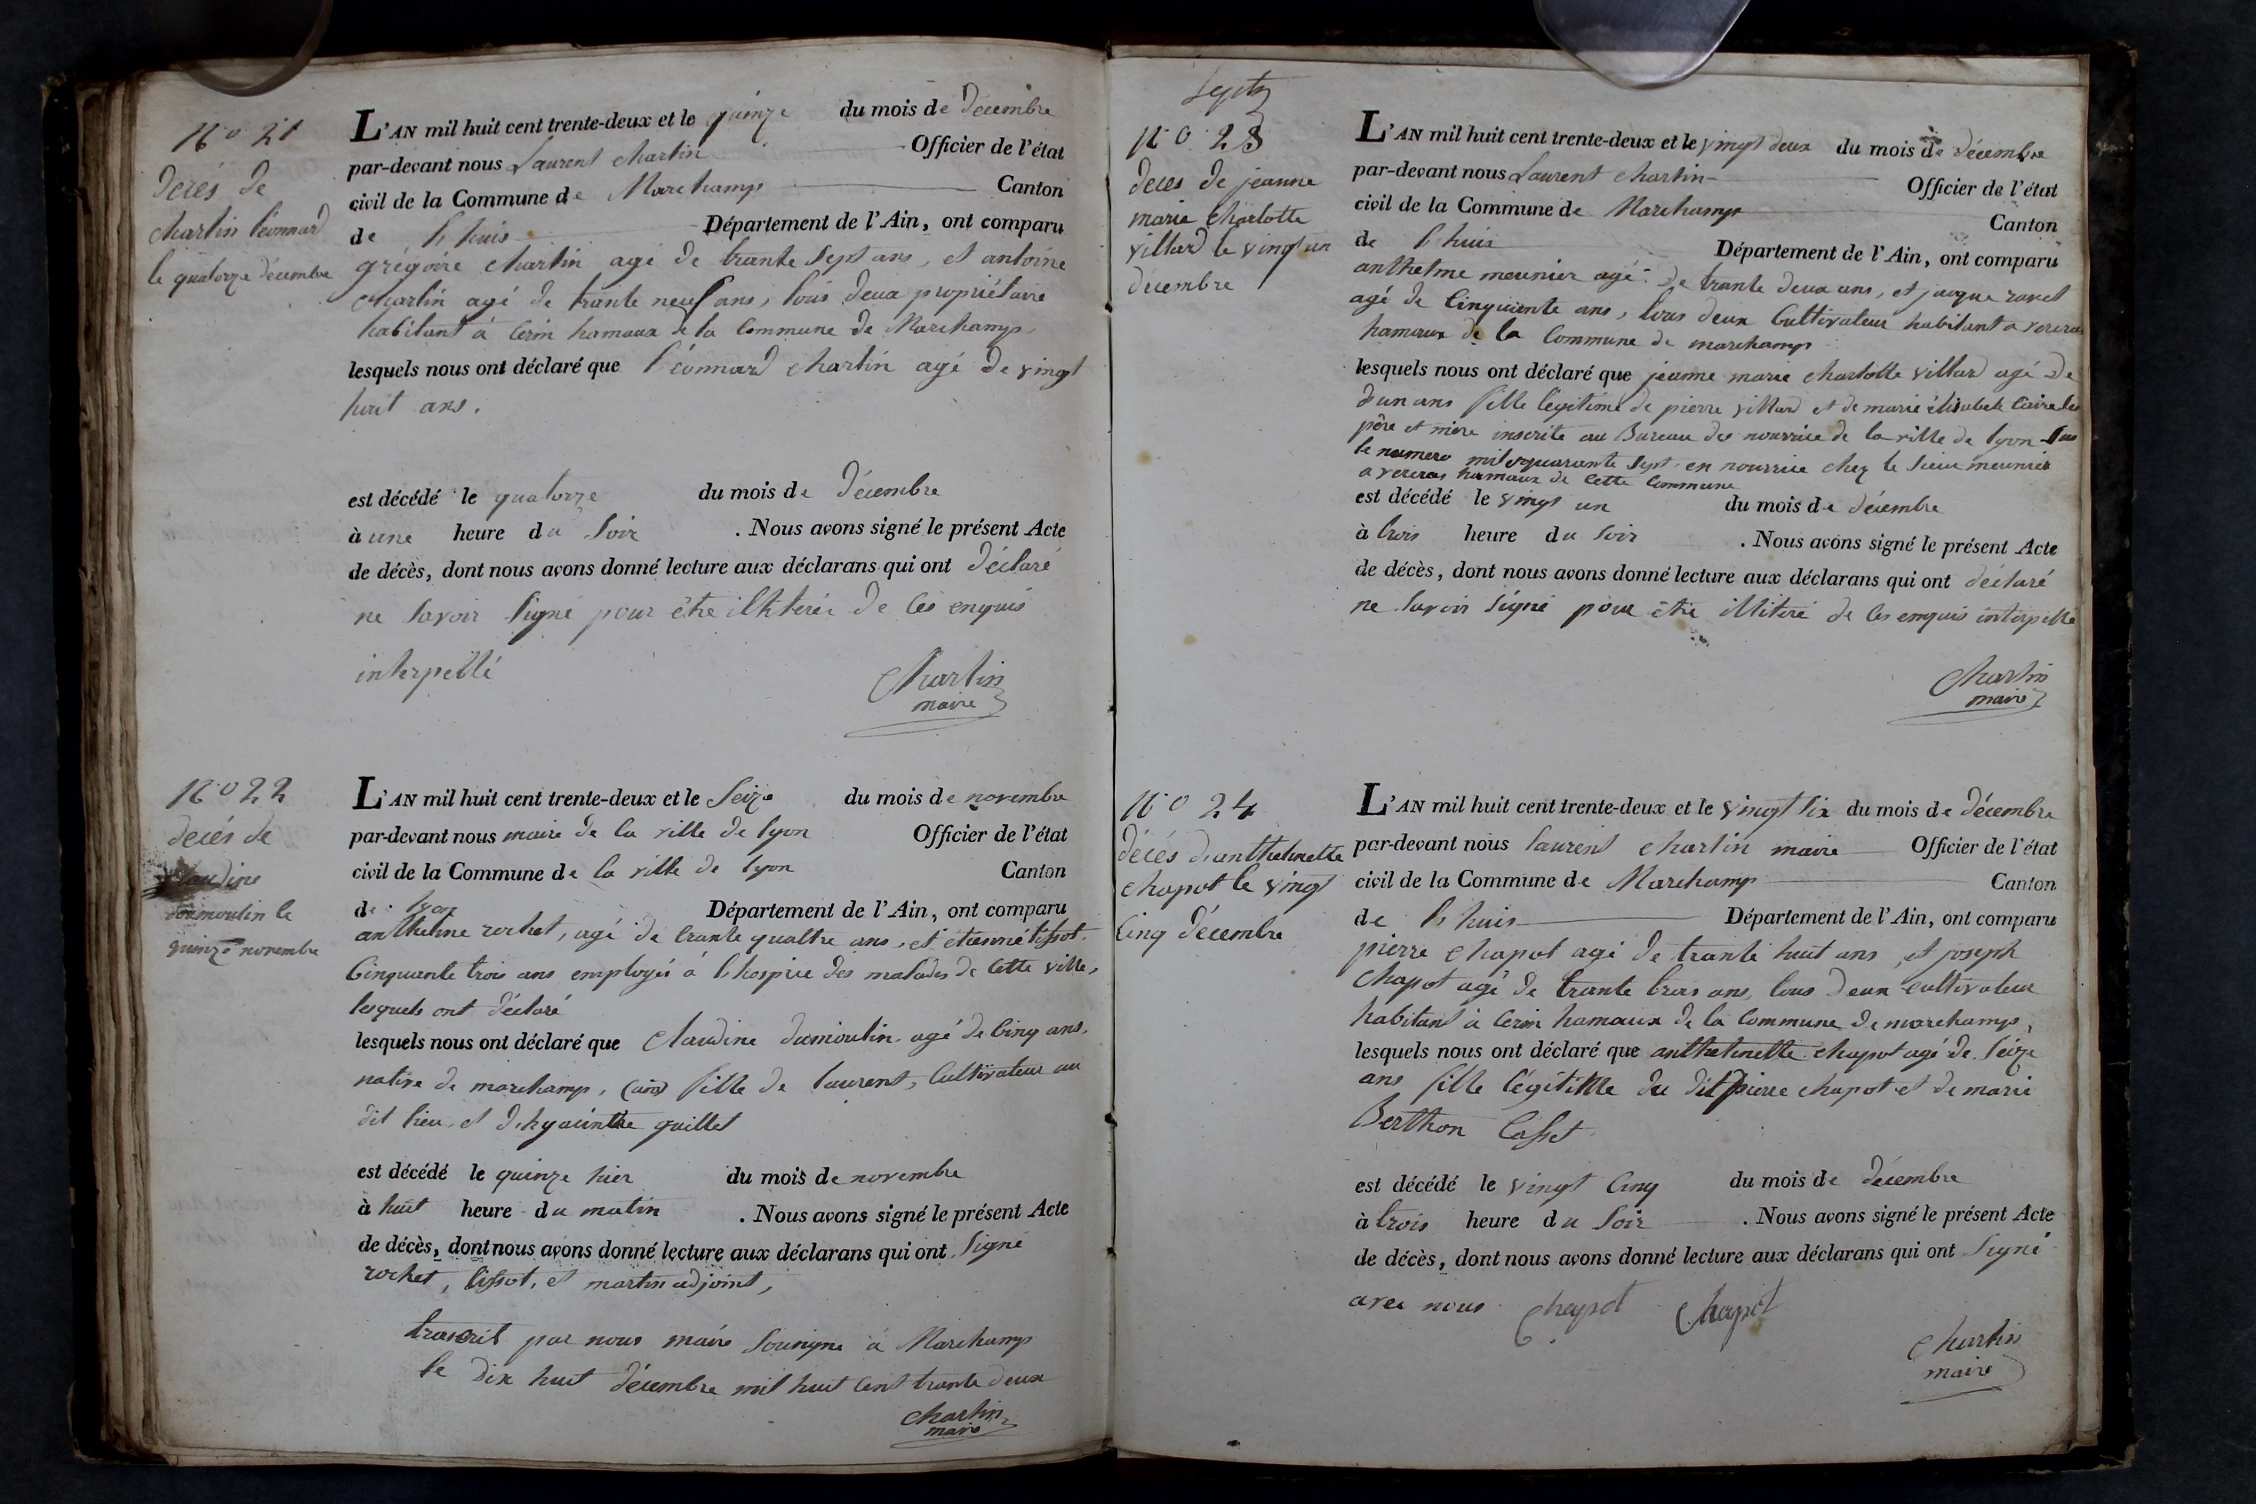 N° 21
Décés de
Charlin léonnard
le quatorze décembre
L'AN mil huit cent trente-deux et le quinze du mois de Décembre
par-devant nous Laurent Charlin Officier de l'état
civil de la Commune de Marchamp Canton
de l'huis Département de l'Ain, ont comparu
grégoire Charlin agé de trante sept ans, et antoine
Charlin agé de trante neuf ans, tous deux propriétaire
habitant à Cerin hamaux de la Commune de Marchamp
lesquels nous ont déclaré que léonnard Charlin agé de vingt
huit ans.
est décédé le quatorze du mois de Décembre
à une heure du Soir . Nous avons signé le présent Acte
de décès, dont nous avons donné lecture aux déclarans qui ont déclaré
ne savoir signé pour être illitéré de ces enquis
interpellé
Charlin
maire
N° 22
décés de
Claudine
dumoulin le
quinze novembre
L'AN mil huit cent trente-deux et le Seize du mois de novembre
par-devant nous maire de la ville de lyon Officier de l'état
civil de la Commune de la ville de lyon Canton
de lyon Département de l'Ain, ont comparu
anthelme rochet, agé de trante quattre ans, et étienne tissot
Cinquante trois ans employés à l'hospice des malades de Cette ville,
lesquels ont déclaré
lesquels nous ont déclaré que Claudine dumoulin agé de Cinq ans,
native de marchamp, (ain) fille de laurent, Cultivateur au
dit lieu et d'hyacinthe guillet
est décédé le quinze hier du mois de novembre
à huit heure du matin . Nous avons signé le présent Acte
de décès, dont nous avons donné lecture aux déclarans qui ont Signé
rochet, tissot, et martin adjoint,
trascrit par nous maire Sousigne à Marchamp
le dix huit décembre mil huit Cent trante deux
Charlin
maire
N° 23
décés de jeanne
marie Charlotte
villard le vingt un
décembre
L'AN mil huit cent trente-deux et le vingt deux du mois de décembre
par-devant nous Laurent Charlin Officier de l'état
civil de la Commune de Marchamp Canton
de l'huis Département de l'Ain, ont comparu
anthelme meunier agé de trante deux ans, et jacque ravet
agé de Cinquante ans, tous deux Cultivateur habitant a
hamaux de la Commune de marchamp
lesquels nous ont déclaré que jeanne marie Charlotte villard agé de
d'un ans fille légitime de pierre villard et de marie élisabeth
père et mère inscrite au Bureau des nourrice de la ville de lyon Sus
le numero mil quarante Sept en nourrice chez le Sieur meunier
a hamaux de Cette Commune
est décédé le vingt un du mois de décembre
à trois heure du Soir . Nous avons signé le présent Acte
de décès, dont nous avons donné lecture aux déclarans qui ont déclaré
ne Savoir Signé pour être illitéré de ces enquis interpellé
Charlin
maire
N° 24
décés d'anthelmette
Chapot le vingt
Cinq décembre
L'AN mil huit cent trente-deux et le vingt Six du mois de décembre
par-devant nous laurent Charlin maire Officier de l'état
civil de la Commune de Marchamp Canton
de l'huis Département de l'Ain, ont comparu
pierre Chapot agé de trante huit ans, et joseph
Chapot agé de trante trois ans, tous deux Cultivateur
habitant à Cerin hamaux de la Commune de marchamp,
lesquels nous ont déclaré que anthelmette Chapot agé de Seize
ans fille légitime du dit pierre Chapot et de marie
Berthon Casset
est décédé le vingt Cinq du mois de décembre
à trois heure du Soir . Nous avons signé le présent Acte
de décès, dont nous avons donné lecture aux déclarans qui ont Signé
avec nous Chapot Chapot
Charlin
maire